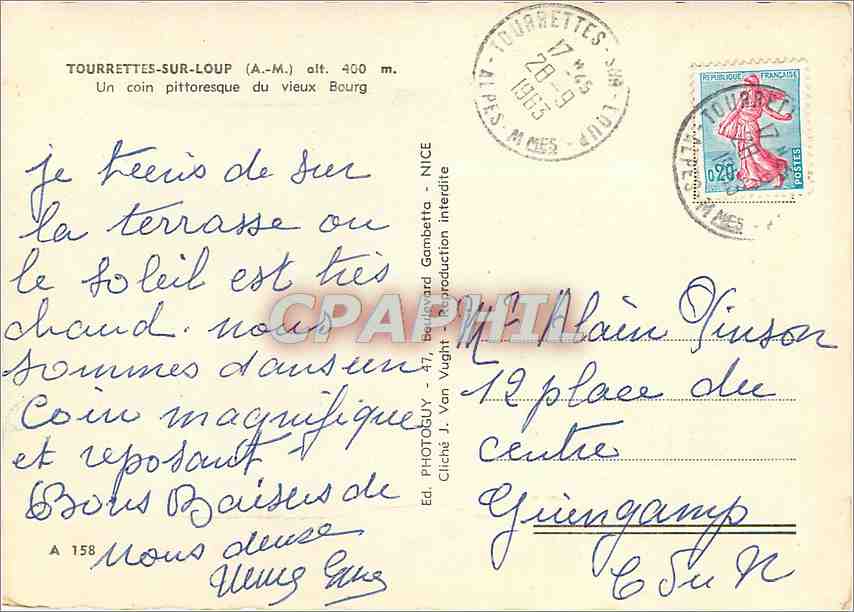 TOURRETTES-SUR-LOUP (A.-M.) alt. 400 m.
Un coin pittoresque du vieux Bourg
je teeris de sur
la terrasse ou
le soleil est très
chaud. nous
sommes dans un
coin magnifique
et reposant
Bons Baisers de
nous deux
A 158
Ed. PHOTOGUY - 47, Boulevard Gambetta - NICE
Cliché J. Van Vught - Reproduction interdite
TOURRETTES-SUR-LOUP
17 H 45
28-9
1963
ALPES-MMES
REPUBLIQUE FRANÇAISE
0,20
POSTES
TOURRET
17
ALPES-MMES
Mr Alain Vinson
12 place du
centre
Guingamp
C du N
CPAPHIL